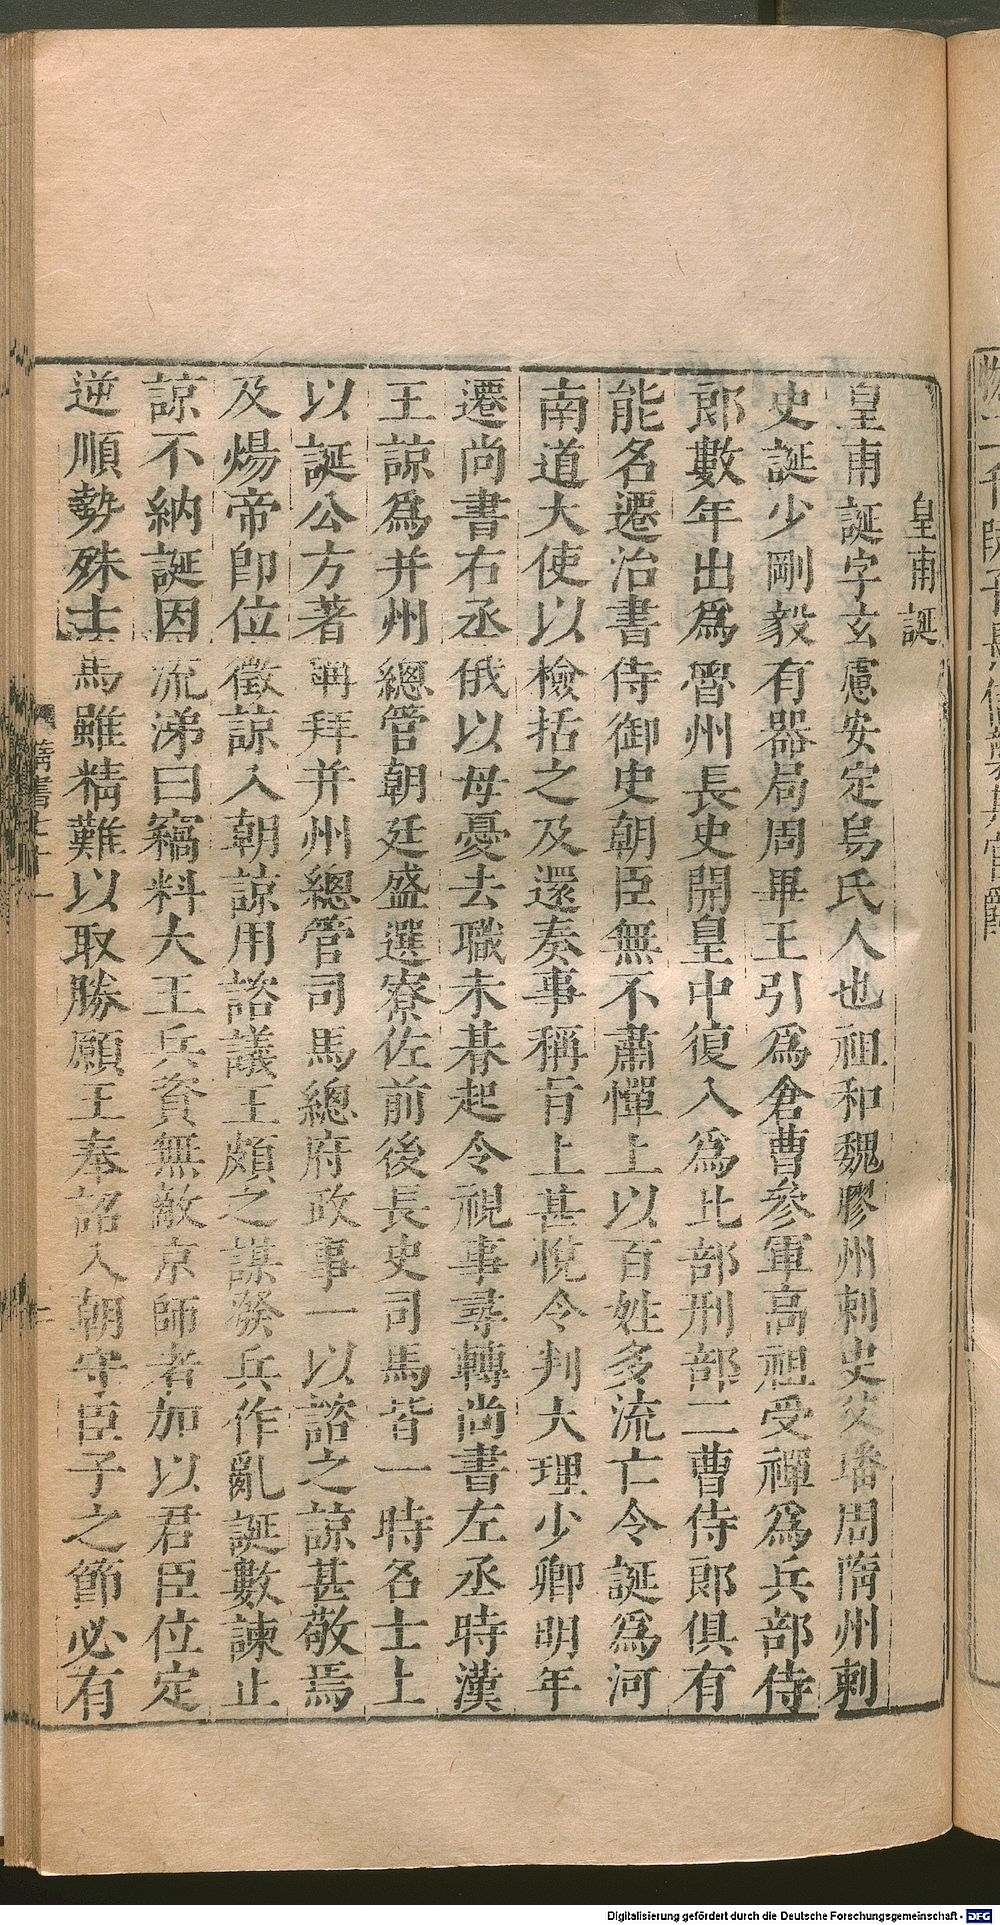 皇甫誕
皇甫誕字玄慮安定烏氏人也祖和魏膠州刺史父璠周隋州刺
史誕少剛毅有器局周畢王引爲倉曹參軍高祖受禪爲兵部侍
郎數年出爲魯州長史開皇中復入爲比部刑部二曹侍郎俱有
能名遷治書侍御史朝臣無不肅憚上以百姓多流亡令誕爲河
南道大使以檢括之及還奏事稱旨上甚悅令判大理少卿明年
遷尚書右丞俄以母憂去職未朞起令視事尋轉尚書左丞時漢
王諒爲并州總管朝廷盛選寮佐前後長史司馬皆一時名士上
以誕公方著稱拜并州總管司馬總府政事一以諮之諒甚敬焉
及煬帝卽位徵諒入朝諒用諮議王頗之謀發兵作亂誕數諫止
諒不納誕因流涕曰竊料大王兵資無敵京師者加以君臣位定
逆順勢殊士馬雖精難以取勝願王奉詔入朝守臣子之節必有
隋書七十一
二
Digitalisierung gefördert durch die Deutsche Forschungsgemeinschaft - DFG